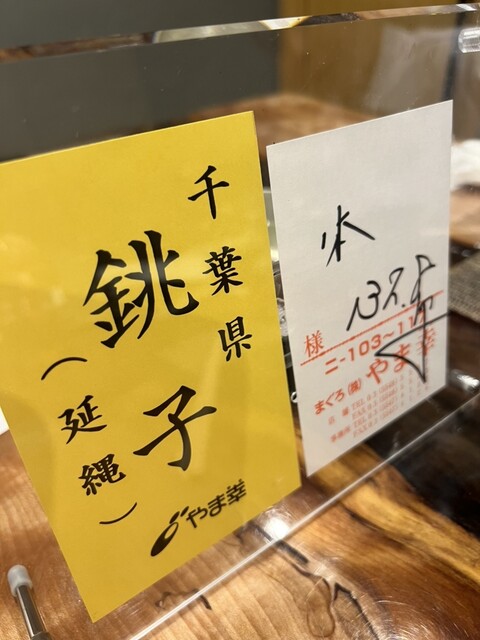 千葉県
銚子
（延縄）
やま幸
様
ニ-103~11
まぐろ㈱やま幸